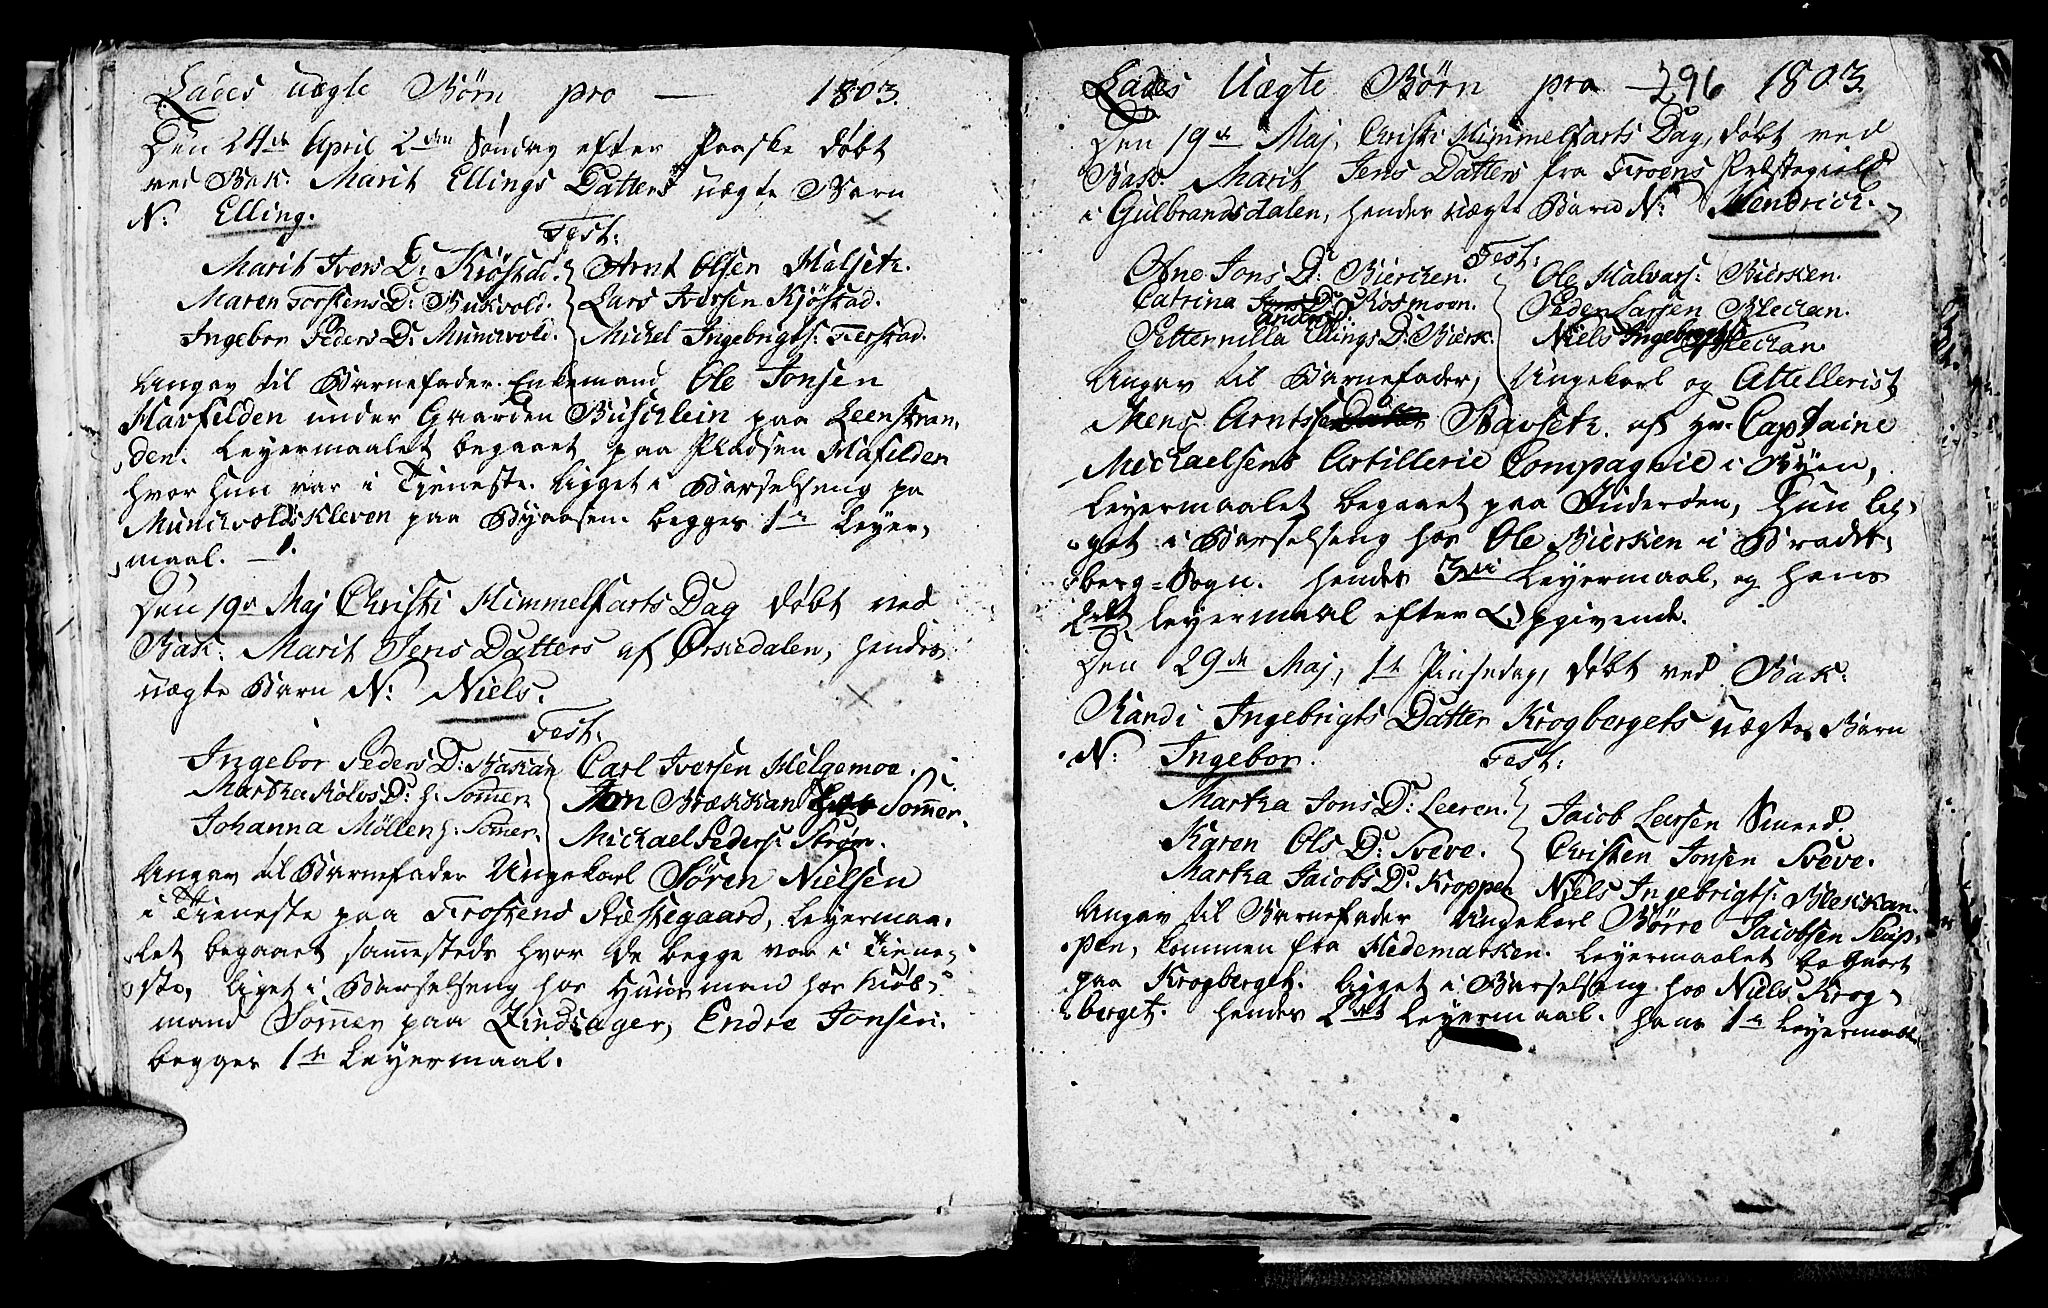 Lades uægte Børn pro — 1803.
Den 24de April 2den Søndag efter Paaske døbt
ved Bak: Marit Ellings Datters uægte Barn
N: Elling.
Test:
Marit Ivers D: Kjøstad. Arnt Olsen Halseth.
Maren Torstens D: Bukvold. Lars Iversen Kjøstad.
Ingebor Peders D: Munchvold. Michel Ingebrigts: Fierstad.
Angav til Barnefader Enkemand Ole Jonsen
Havfelden under Gaarden Buschlein paa Leenstran,
den. Leyermaalet begaaet paa Pladsen Hafelden
hvor hun var i Tjeneste. Ligget i Barselseng pa
Munchvolds Kleven paa Byaasen. begges 1te Leyer,
maal. —
Den 19de Maj Christi Himmelfarts Dag døbt ved
Bak: Marit Jens Datters af Ørkedalen, hendes
uægte Barn N: Niels.
Test:
Ingebor Peders D: Bakan Carl Iversen Helgemoe.
Martha Rolvs D: h: Sommer Jon Brækkan Sommer.
Johanna Möllen h: Sommer. Michael Peders: Strøm.
Angav til Barnefader Ungekarl Søren Nielsen
i Tieneste paa Frostens Præstegaard, Leyermaa,
let begaaet sammesteds hvor de begge var i Tiene,
ste, liget i Barselseng hos Huusmand hos Kiøb,
mand Sommer paa Rindsager, Endre Jonsen.
begges 1te Leyermaal.
Lades Uægte Børn pro — 296 1803
Den 19de Maj, Christi Himmelfarts Dag, døbt ved
Bak: Marit Jens Datters fra Froens Præstegield
i Gulbrandsdalen, hendes uægte Barn N: Hendrich.
Test:
Ane Jons D: Biercken. Ole Halvars: Biersken.
Catrina Anders D: Rosmoen. Peder Larsen Bleckan.
Petternilla Ellings D: Biersk: Niels Ingebrigts: Bleckan.
Angav til Barnefader, Ungekarl og Attellerist
Hens Arntssen Stavseth. af Hr. Captaine
Michaelsens Artillerie Compagnie i Byen,
Leyermaalet begaaet paa Inderøen, hun lig,
get i Barselseng hos Ole Biersken i Bradts,
berg=Sogn. hendes 3die Leyermaal, og hans
2det Leyermaal efter Opgivende.
Den 29de Maj, 1te Pinsedag, døbt ved Bak:
Randi Ingebrigts Datter Krogbergets uægte Barn
N: Ingebor.
Test:
Martha Jons D: Leeren. Jacob Larsen Smed.
Karen Ols D: Sveve. Christen Jonsen Sveve.
Martha Jacobs D: Kroppen Niels Ingebrigts: Blekkan.
Angav til Barnefader Ungekarl Børre Jacobsen
pen, kommen fra Hedemarken. Leyermaalet begaaet
paa Krogberget. ligget i Barselseng hos Niels Krog,
berget. hendes 2det Leyermaal. hans 1te Leyermaal